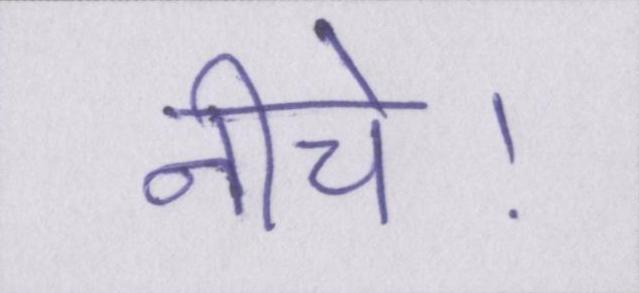 नीचे!